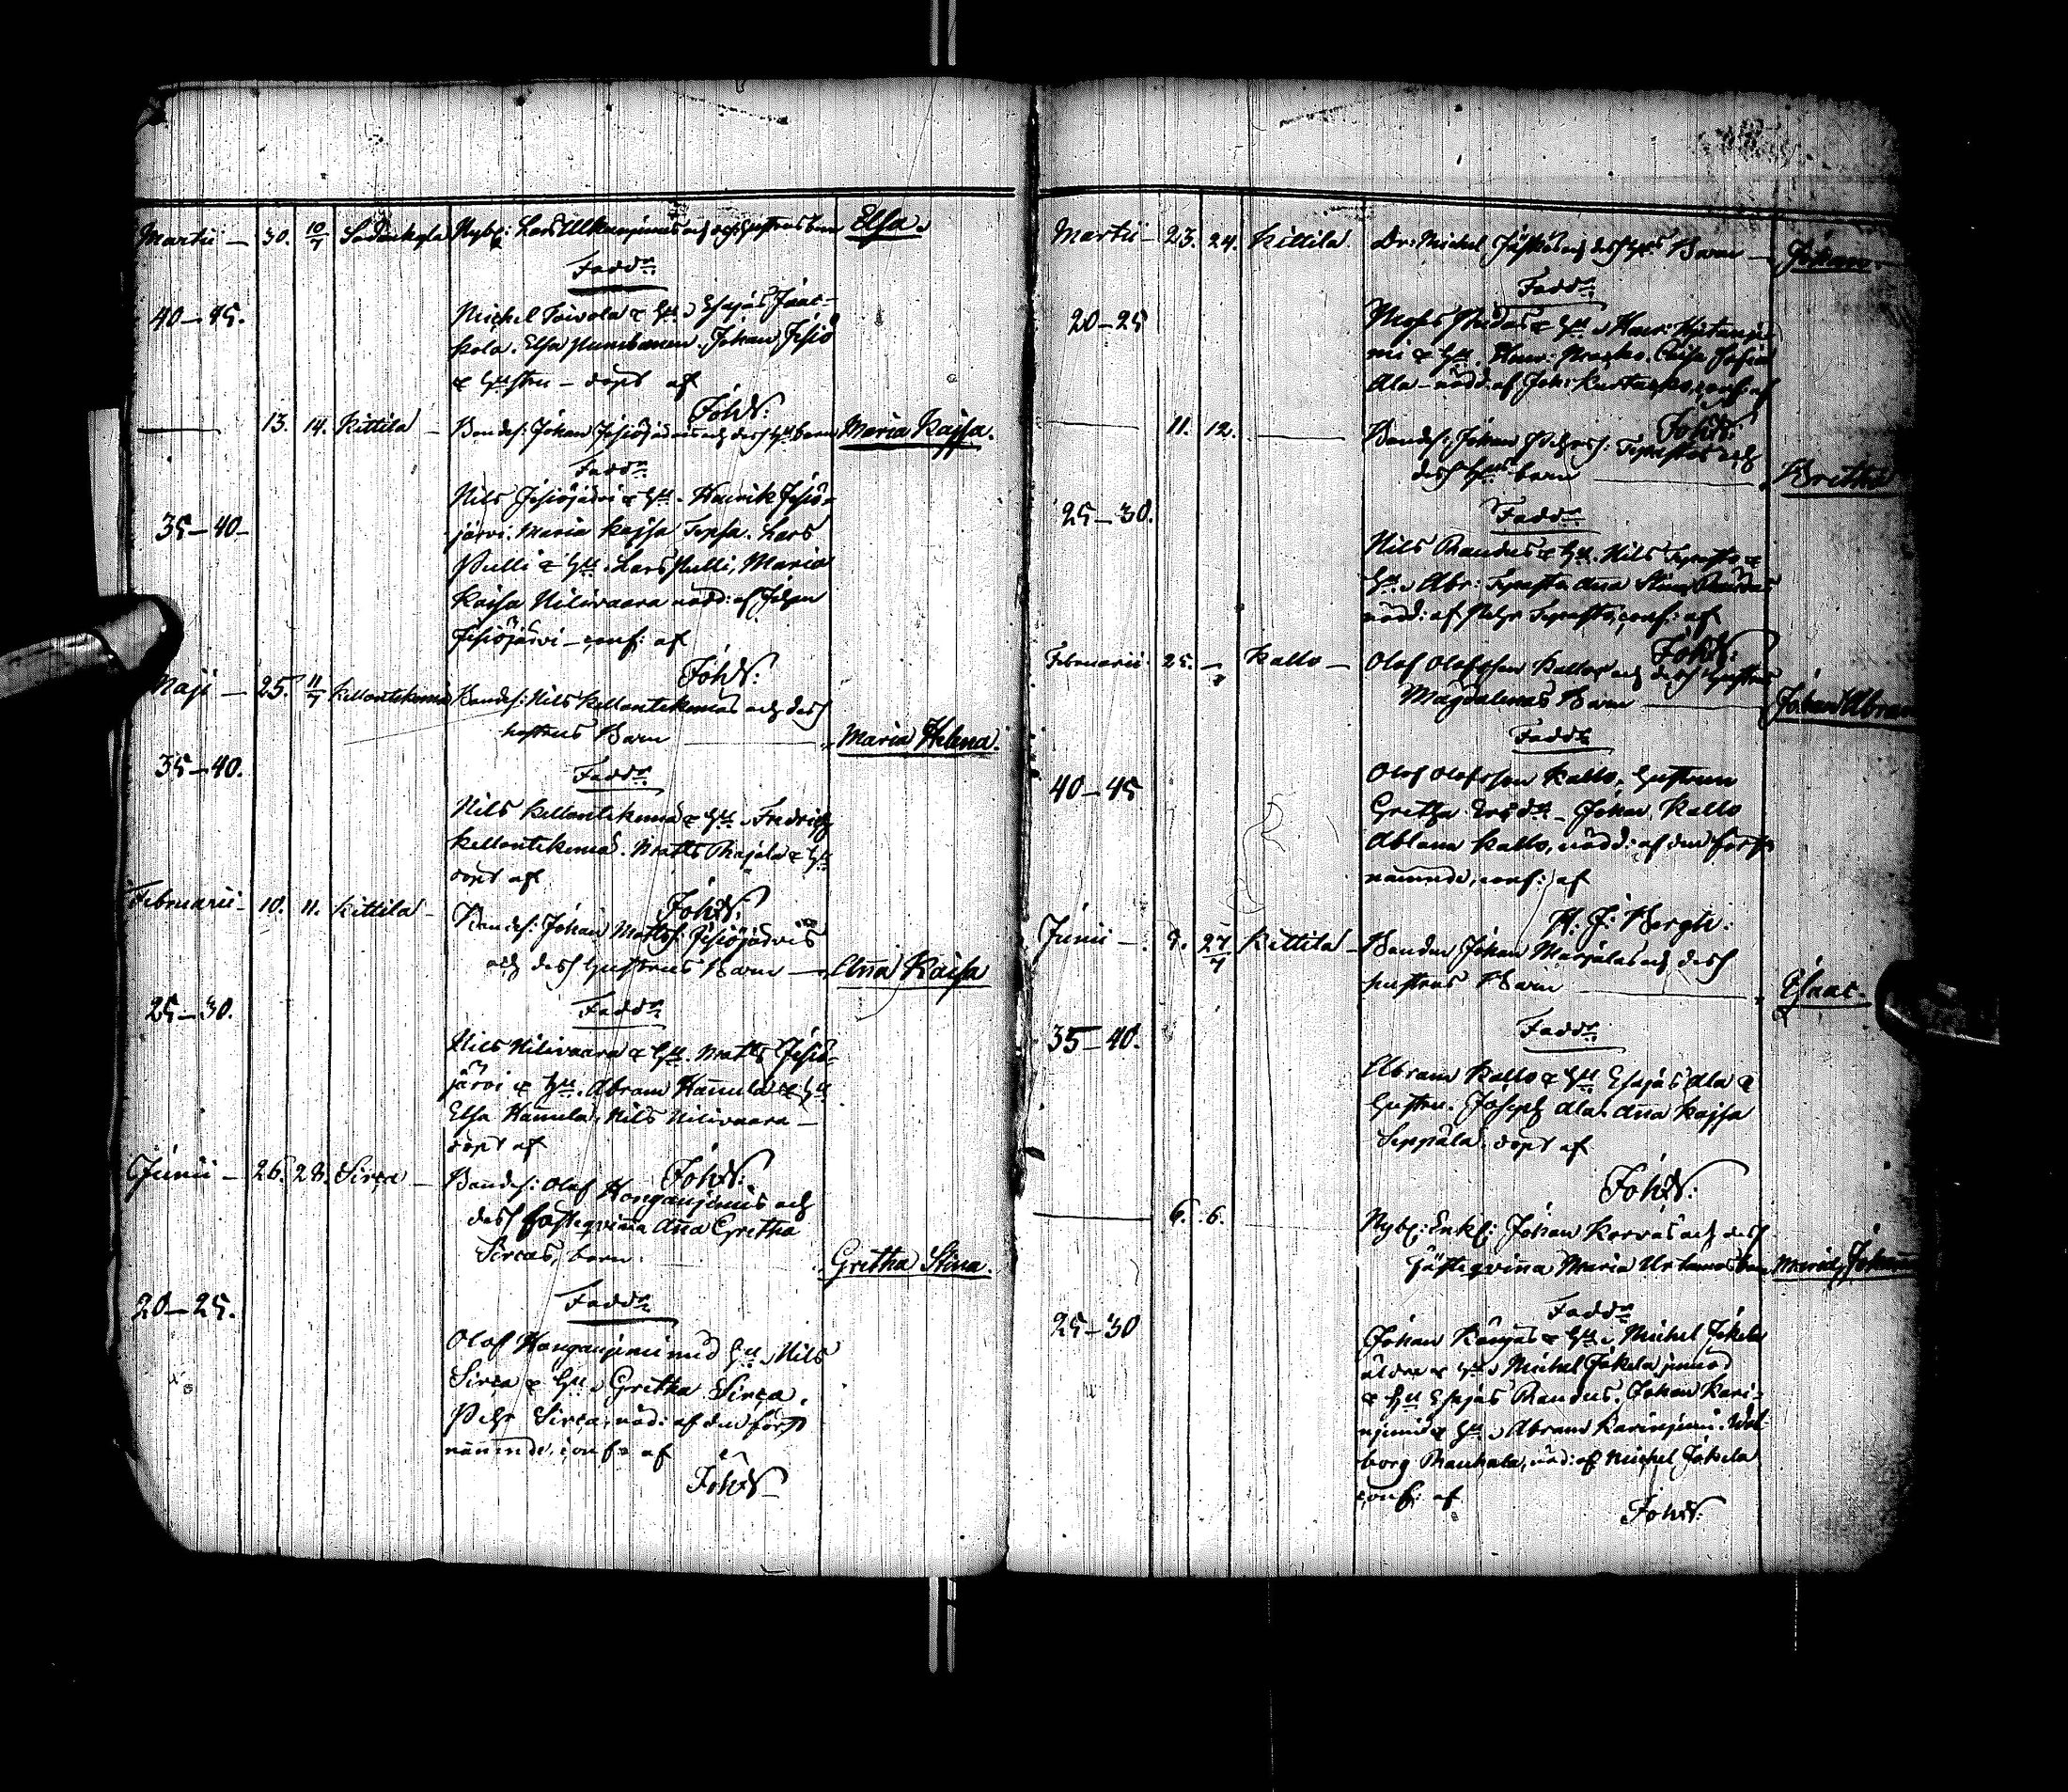 Martii — 30. 10/7 Sodankyla Nyb: Lars Ulkuniemis och hustrus barn Elsa.
Fadd:
40—45. Michel Toivola & Hu. Esajas Jaac-
kola. Elsa Johan Jesiö
& Hustru — döpt af
Fohst:
13. 14. Kittila — Bondes: Johan Jesiöjärvis och dess Hu barn Maria Kajsa.
Fadd:
Nils Jesiöjärvi & Hu. Henrik Jesiö-
35—40— järvi. Maria Kajsa Tepsa. Lars
Pulli & Hu. Lars Pulli, Maria
Kaisa Nilivaara nödd: af Johan
Jesiöjärvi — conf: af
Fohst:
Maji — 25. 11/7 Kellontekemä Bondes: Nils Kellontekemäs och dess
hustrus Barn Maria Helena.
35—40. Fadd:
Nils Kellontekemä & Hu. Fredrich
Kellontekemä. Matts Rajala & Hu
döpt af
Fohst:
Februarii — 10. 11. Kittila — Bondes: Johan Mattss: Jesiöjärvis
och dess hustrus Barn — Anna Kaisa
25—30. Fadd:
Nils Nilivaara & Hu. Matts Jesiö-
järvi & Hu. Abram Hannula & Hu
Elsa Hannula, Nils Nilivaara —
döpt af
Fohst:
Junii — 26. 28. Sirca — Bondes: Olof Honganjemis och
dess fästeqvinna Anna Gretha
Sircas, barn Gretha Stina.
20—25. Fadd:
Olof Honganjemi med Hu, Nils
Sirca & Hu, Gretha Sirca.
Pehr Sirca, nöd: af den först
nämnde, conf: af
Fohst
Martii — 23. 24. Kittila. Dr: Michel och dess Hus Barn — Johan
Fadd:
20—25 Moses & Hu, Henr:
& Hu. Henr: Caisa
Ala — nödd af Joh: conf: af
Fohst:
11. 12. Bondes: Johan Pehrss: och
dess Hus barn Bretha
25—30. Fadd:
Nils Raudus & Hu. Nils &
Hu. Abr: Anna Stina Raudus
nödd: af Pehr conf: af
Fohst:
Februarii 25. — Kallo — Olof Olofsson Kallos och dess hustrus
Magdalenas Barn Johan Abram
Fadd:
40—45 Olof Olofsson Kallo, hustrun
Gretha Johan Kallo
Kallo, nödd: af den först
nämnde, conf: af
H. J: Bergh:
Junii — 9. 27/7 Kittila — Bonden Johan Marjalas och dess
hustrus Barn Esaac.
35—40. Fadd:
Abram Kallo & Hu Esajas Ala &
hustru. Joseph Ala. Anna Kajsa
Seppälä. döpt af
Fohst:
6. 6. Nyb: Enkl: Johan Korvas och dess
fästeqvinna Maria barn Maria Johanna
25—30 Fadd:
Johan Kangas & Hu, Michel Jokela
äldre & Hu, Michel Jokela junior
& Hu Esajas Raudus. Johan Kari-
njemi & Hu, Abram Karinjemi. Wal-
borg Raukala, nöd: af Michel Jokela
conf: af
Fohst: